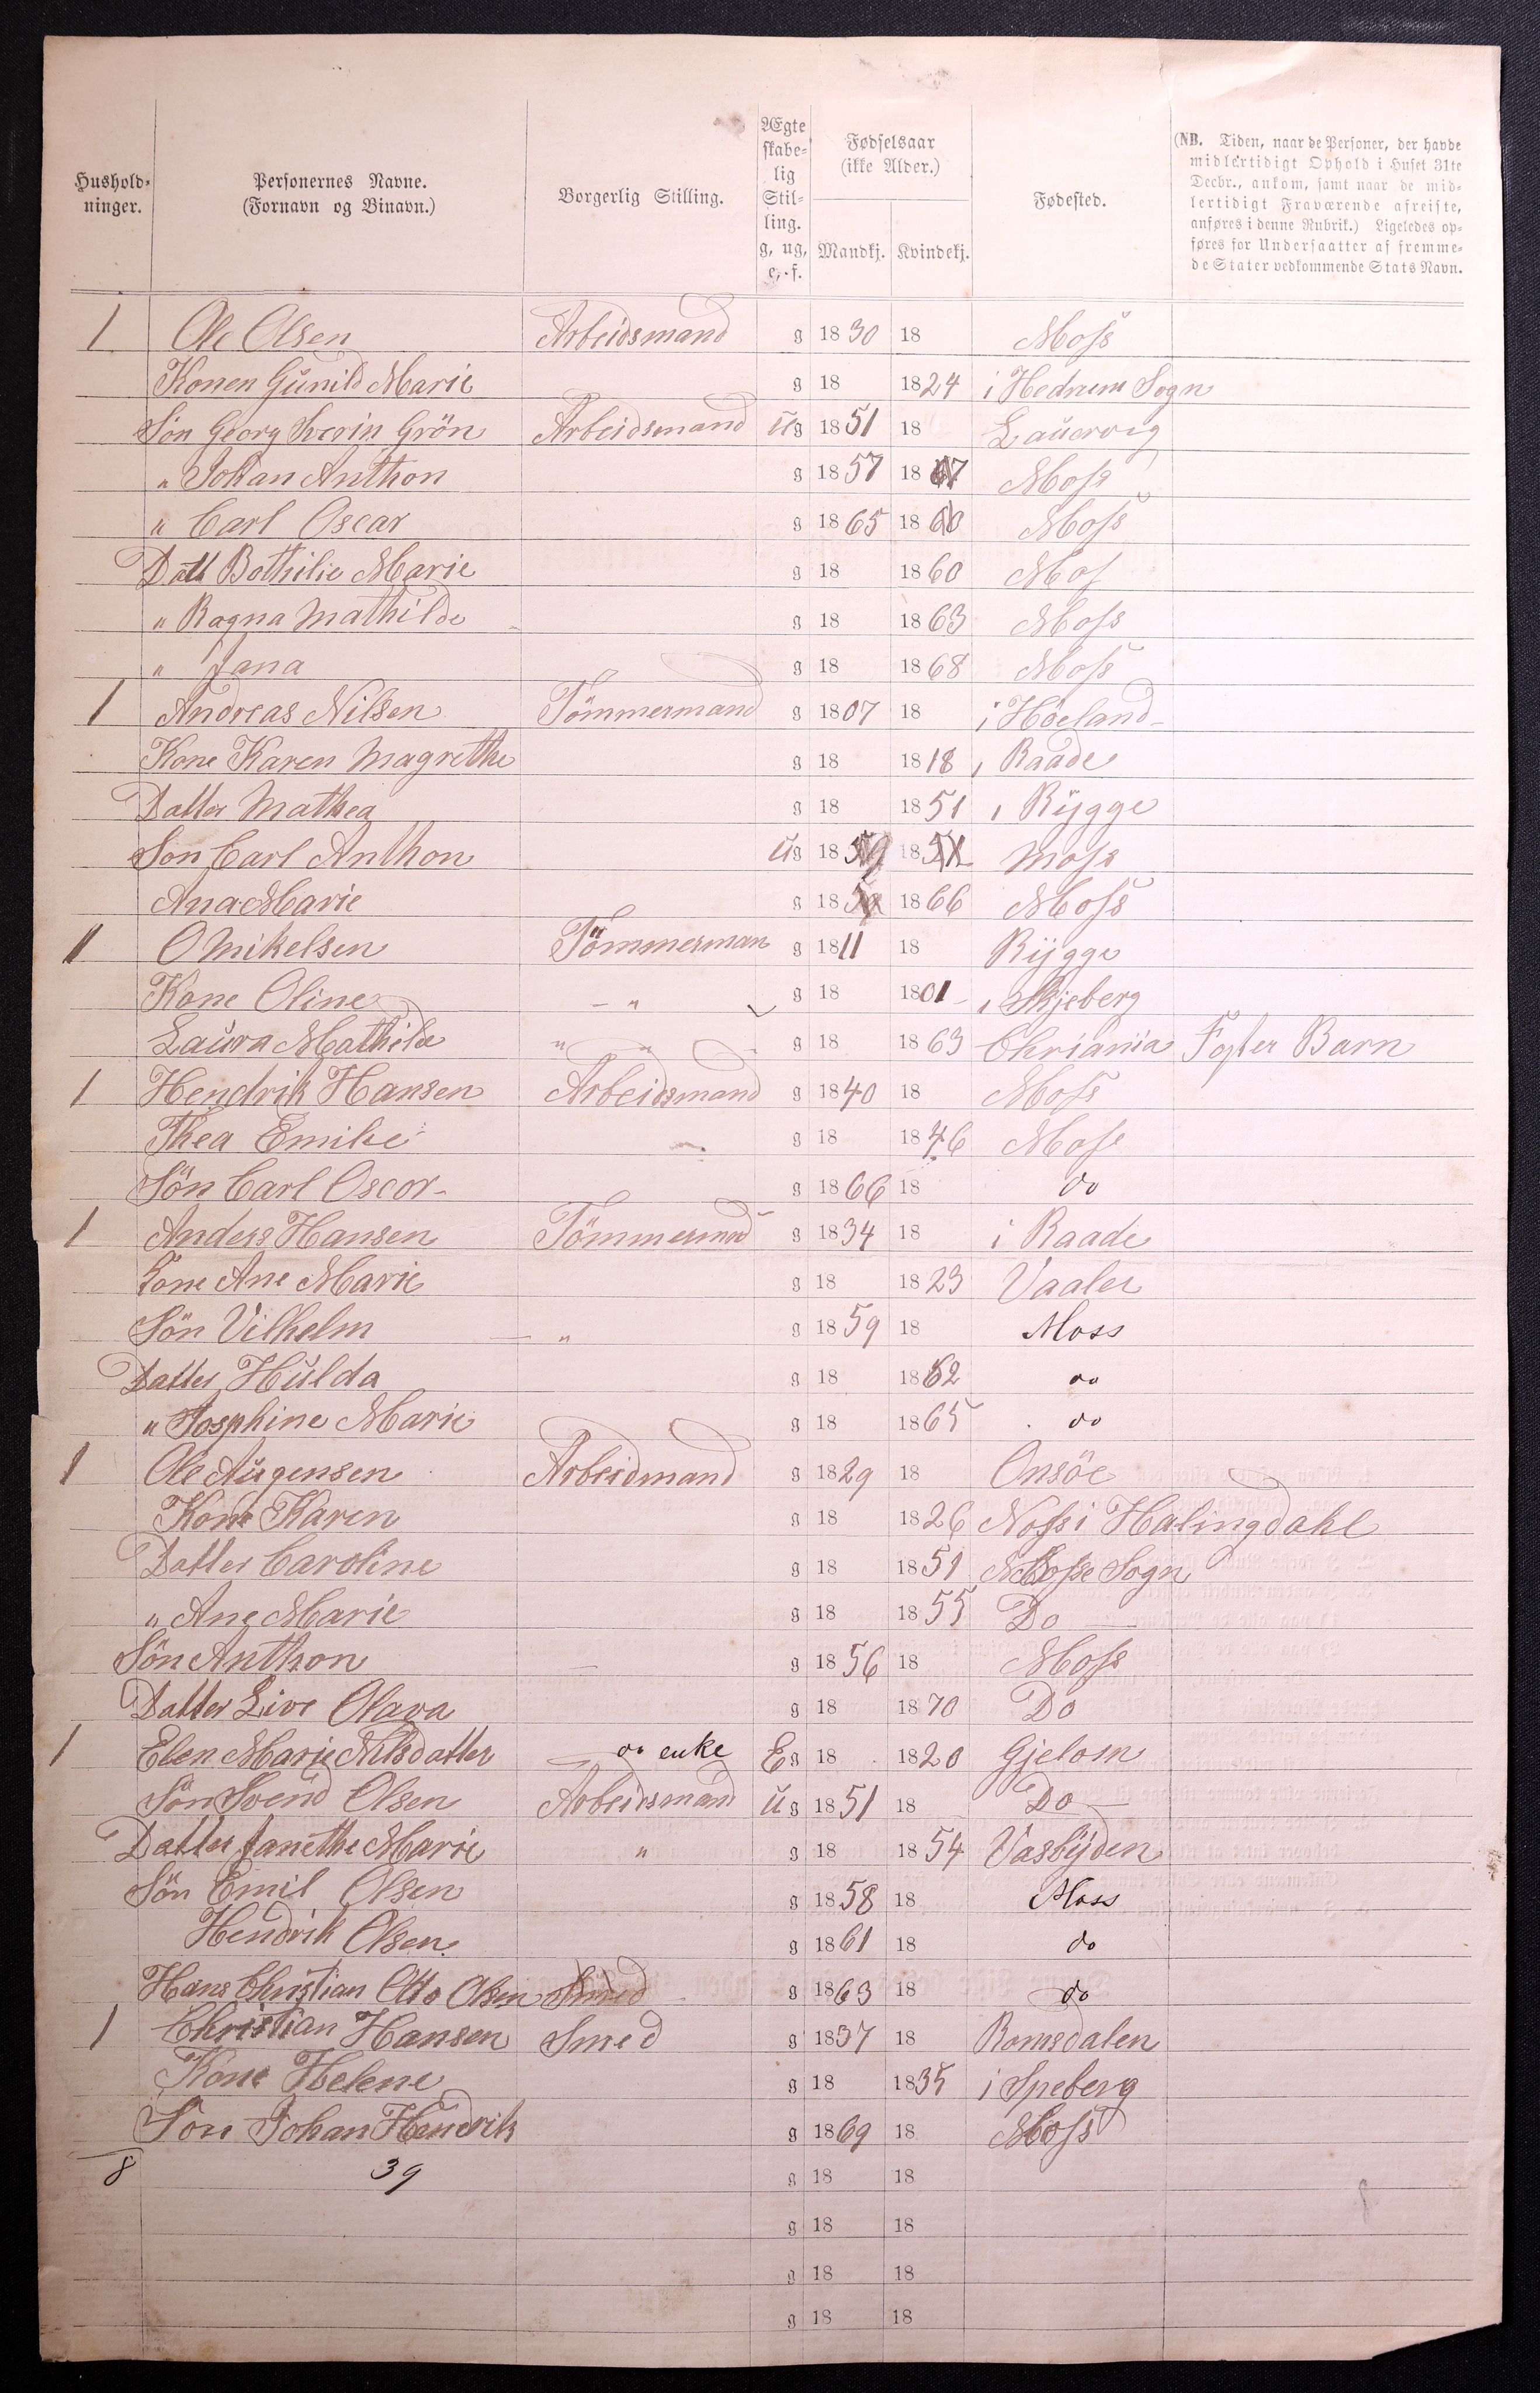 Hushold-
ninger.
Personernes Navne.
(Fornavn og Binavn.)
Borgerlig Stilling.
Ægte
skabe-
lig
Stil-
ling.
g, ug,
e, f.
Fødselsaar
(ikke Alder.)
Mandkj. Kvindekj.
Fødested.
(NB. Tiden, naar de Personer, der havde
midlertidigt Ophold i Huset 31te
Decbr., ankom, samt naar de mid-
lertidigt Fraværende afreiste,
anføres i denne Rubrik.) Ligeledes op-
føres for Undersaatter af fremme-
de Stater vedkommende Stats Navn.
1 Ole Olsen Arbeidsmand g 1830 18 Moss
Konen Gunild Marie g 18 1824 i Hedrum Sogn
Søn Georg Sverin Grön Arbeidsmand ug 1851 18 Lauervig
" Johan Anthon g 1857 18 Moss
" Carl Oscar g 1865 18 Moss
Datt Bothilie Marie g 18 1860 Mos
" Ragna Mathilde g 18 1863 Moss
" Jana g 18 1868 Moss
1 Andreas Nilsen Tömmermand g 1807 18 i Höeland
Kone Karen Magrethe g 18 1818 i Raade
Datter Mathea g 18 1851 i Rygge
Son Carl Anthon ug 1859 18 Moss
Ana Marie g 18 1866 Moss
1 O Mikelsen Tömmerman g 1811 18 Rygge
Kone Oline - " g 18 1801 i Skjeberg
Laura Mathilde " " g 18 1863 Chriania Foster Barn
1 Hendrik Hansen Arbeidsmand g 1840 18 Moss
Thea Emilie g 18 1846 Moss
Sön Carl Oscor g 1866 18 do
1 Anders Hansen Tömmermd g 1834 18 i Raade
Kone Ane Marie g 18 1823 Vaaler
Sön Vilhelm " g 1859 18 Moss
Datter Hulda g 18 1862 do
" Josphine Marie g 18 1865 do
1 Ole Augensen Arbeidmand g 1829 18 Onsöe
Kone Karen g 18 1826 Noss i Halingdahl
Datter Caroline g 18 1851 Mosse Sogn
" Ane Marie g 18 1855 Do
Sön Anthon g 1856 18 Moss
Datter Live Olava g 18 1870 Do
1 Elen Marie Nilsdatter do enke Eg 18 1820 Gjelom
Sön Svend Olsen Arbeidsmand ug 1851 18 Do
Datter Janethe Marie " g 18 1854 Vasbyden
Sön Emil Olsen g 1858 18 Moss
Hendrik Olsen g 1861 18 do
Hans Christian Otto Olsen Smed g 1863 18 do
1 Christian Hansen Smed g 1837 18 Romsdalen
Kone Helene g 18 1835 i Speberg
Son Johan Hendrik g 1869 18 Moss
8 39 g 18 18
g 18 18
g 18 18
g 18 18